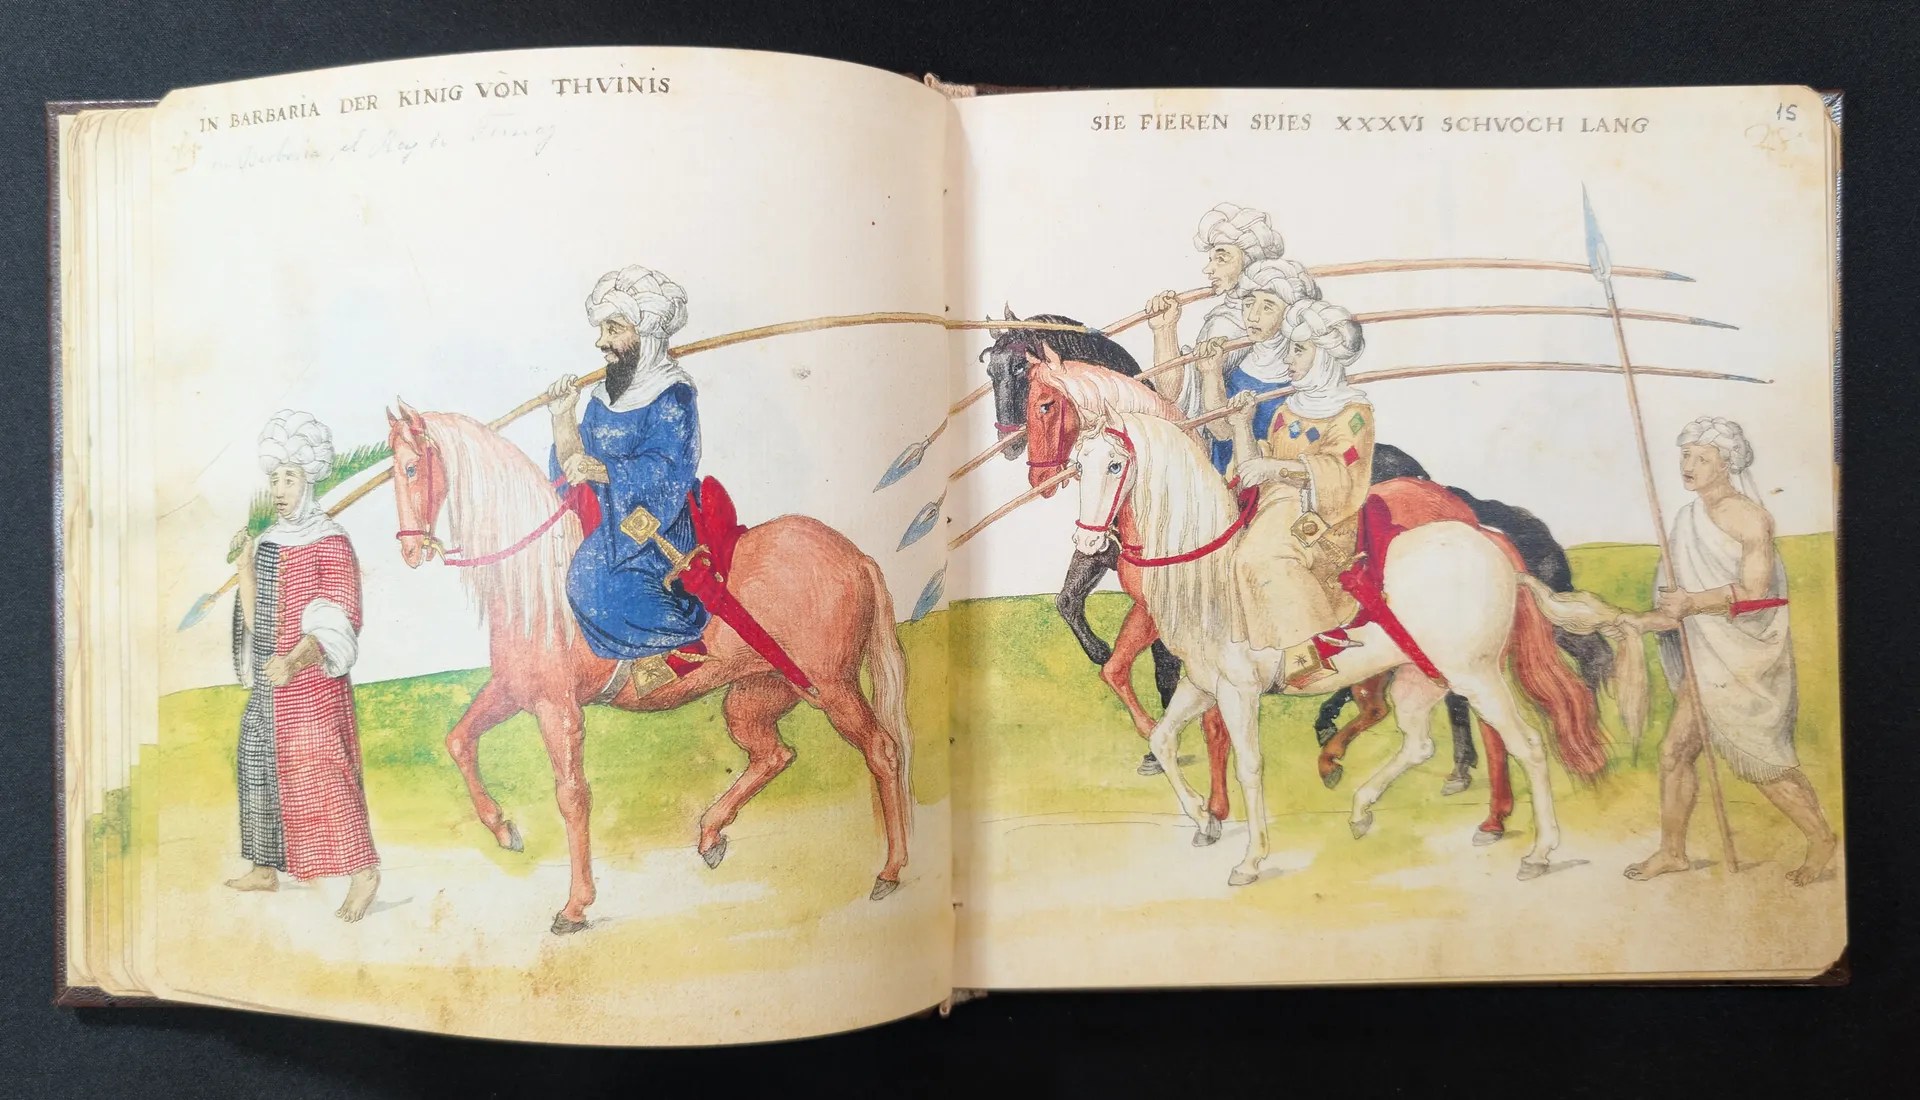 IN BARBARIA DER KINIG VON THVINIS
Barbaria, el Rey de
SIE FIEREN SPIES XXXVI SCHVOCH LANG
15
28